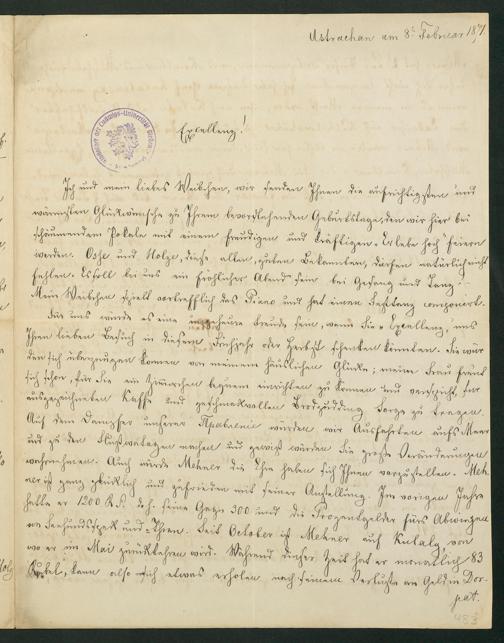 Astrachan am 8t Februar 1871.
Excellenz!
Ich und mein liebes Weibchen, wir senden Ihnen die aufrichtigsten und
wärmsten Glückwünsche zu Ihrem bevorstehenden Geburtstage, den wir hier bei
schäumendem Pokale mit einem freudigen und kräftigen „Er lebe hoch" feiern
werden. Osse und Holge, diese alten, guten Bekannten, dürfen natürlich nicht
fehlen. Es soll bei uns ein fröhlicher Abend sein bei Gesang und Tanz.
Mein Weibchen spielt vortrefflich das Piano und hat einen componirt.
Für uns würde es eine ungeheure Freude sein, wenn Sie, Excellenz, uns
Ihren lieben Besuch in diesem Frühjahr oder Herbst schenken könnten. Sie wür
den sich überzeugen können von meinem häuslichen Glücke; meine Frau freut
sich schon, für Sie ein Zimmerchen bequem einrichten zu können und verspricht, für
ausgezeichneten Kaffe und geschmackvollen Brodpudding Sorge zu tragen.
Auf dem Dampfer unserer Правленіе würden wir Ausfahrten aufs Meer
und zu den machen und gewiss würden Sie große Veränderungen
wahrnehmen. Auch würde Metzner die Ehre haben sich Ihnen vorzustellen. Metz
ner ist ganz glücklich und zufrieden mit seiner Anstellung. Im vorigen Jahre
hatte er 1200 R.S. d.h. seine Gage 300 und die Prozentgelder fürs Abwiegen
von Seehundsspeck und Thran. Seit October ist Metzner auf Kulaly, von
wo er im Mai zurückkehren wird. Während dieser Zeit hat er monatlich 83
Rubel, kann also sich etwas erholen nach seinem Verluste an Geld in Dor-
pat.
483